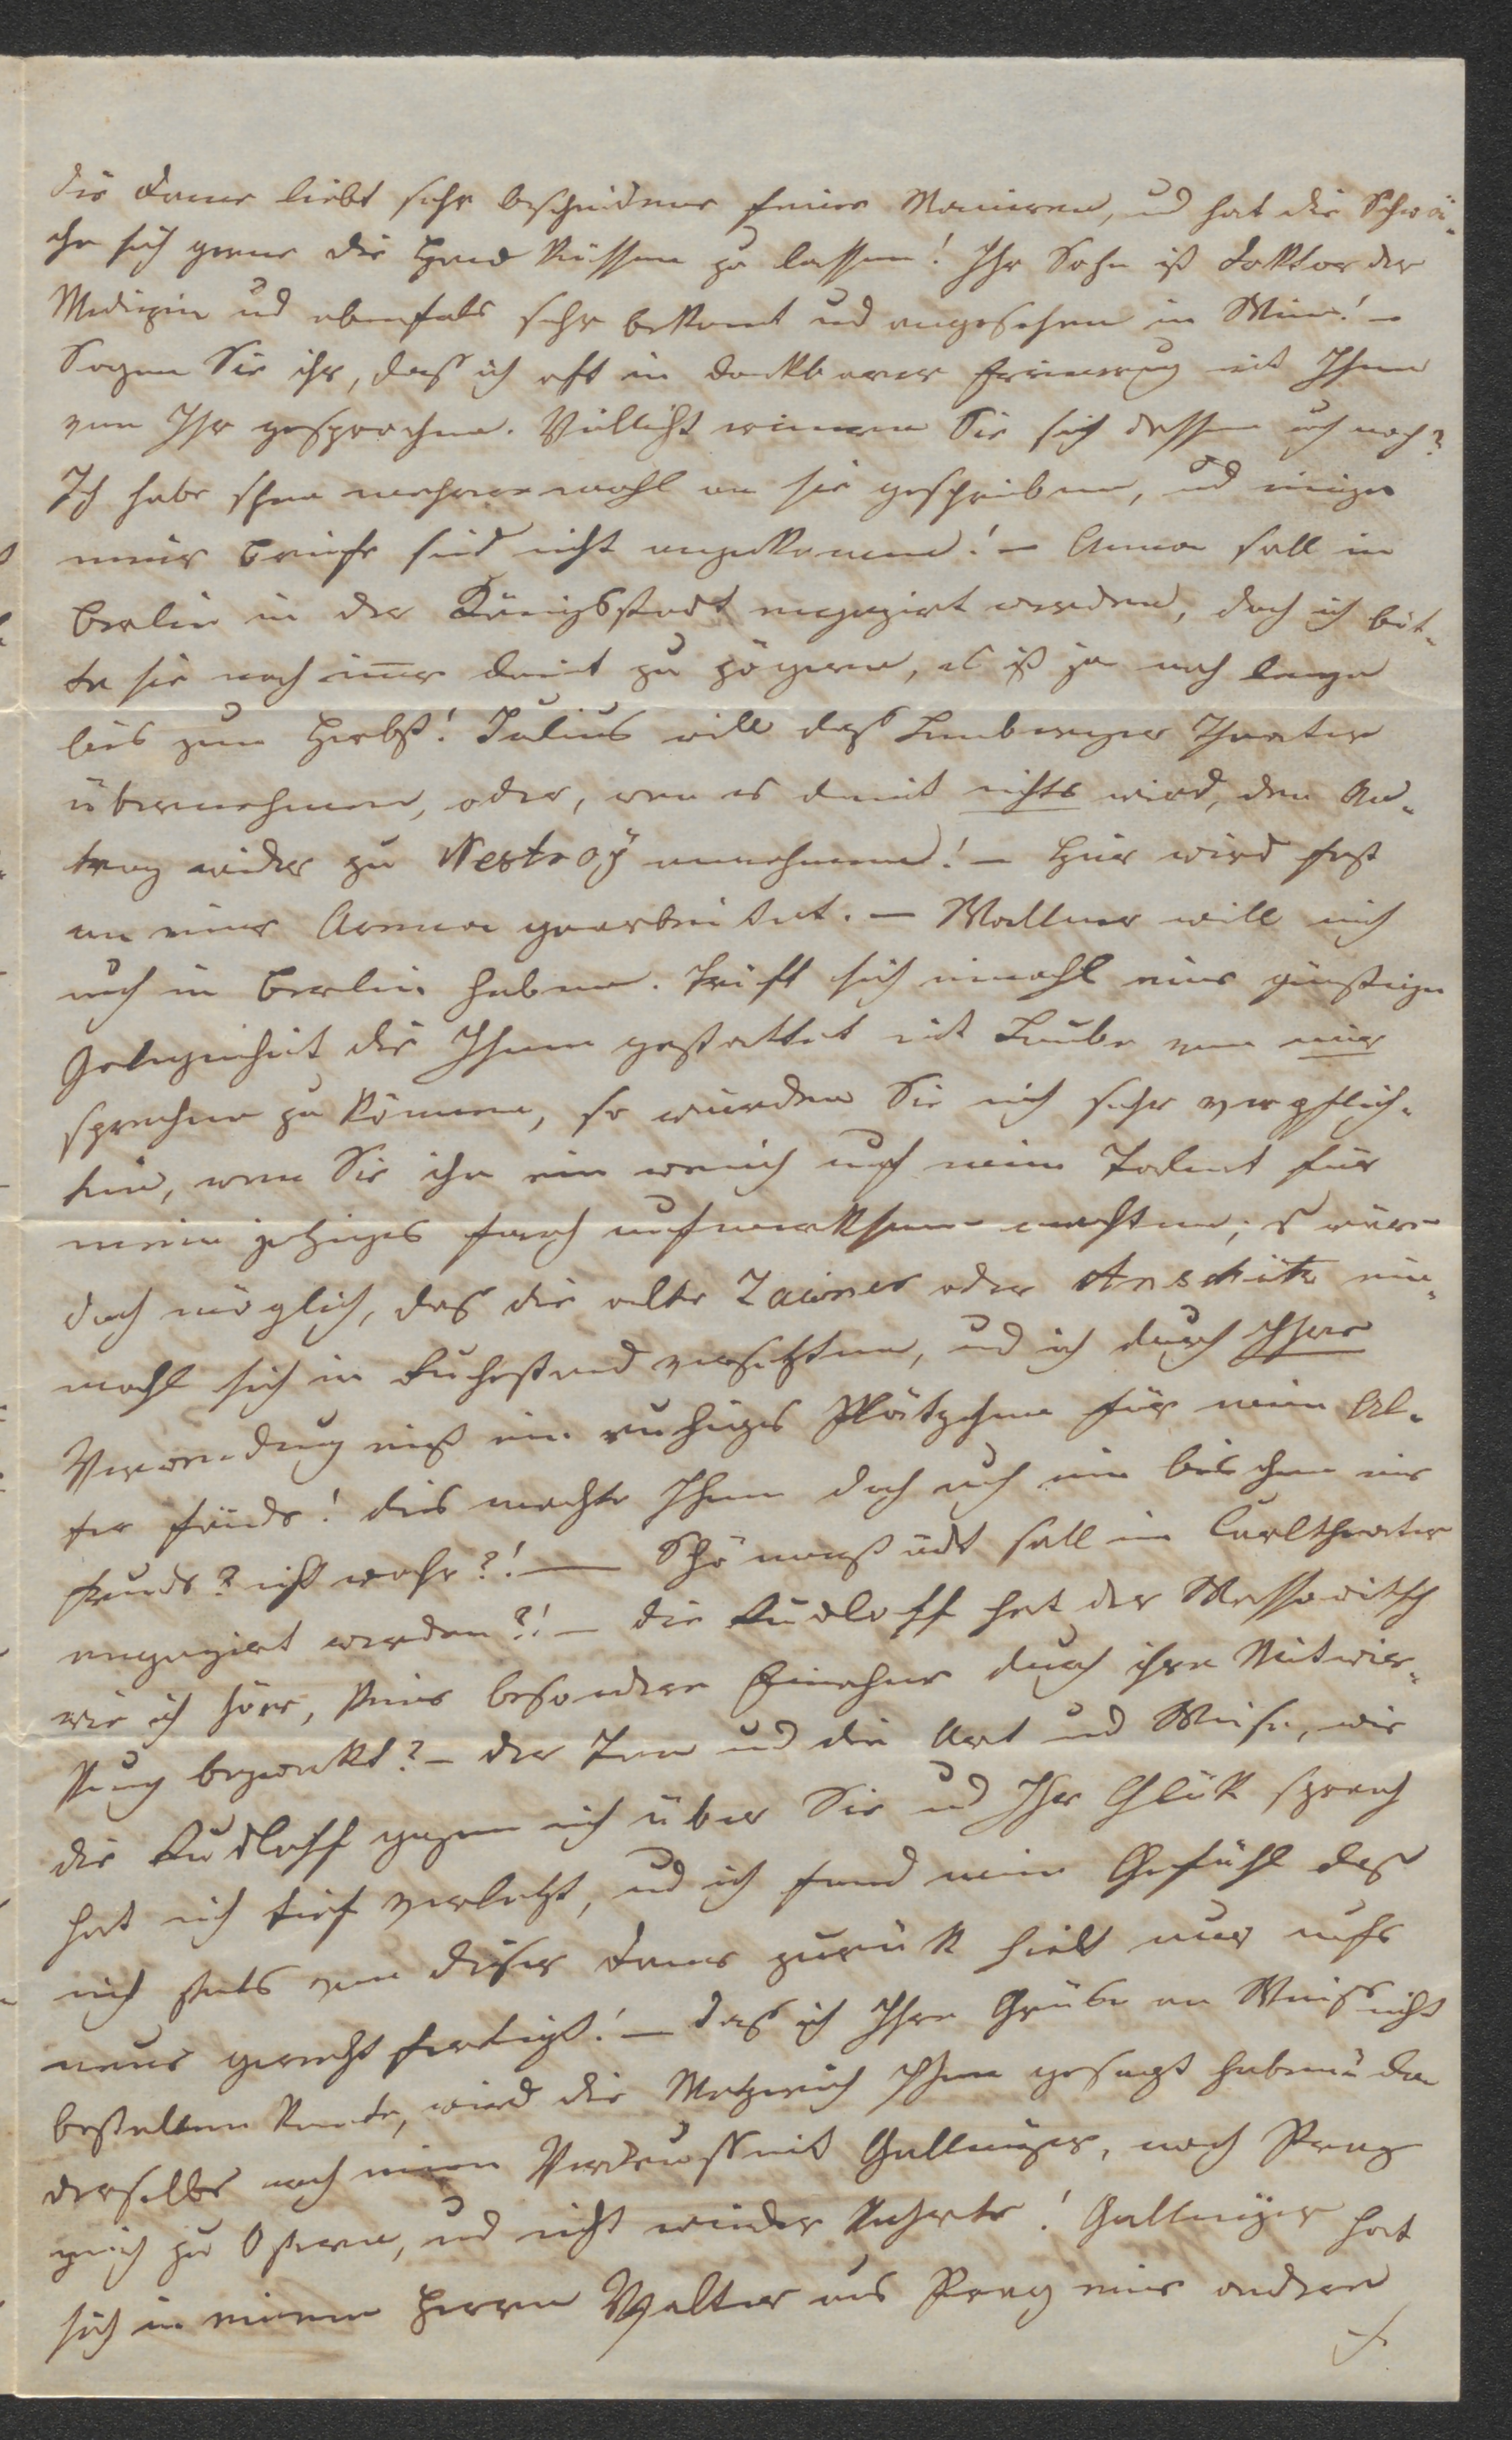 die Dame liebt sehr bescheidene feine Manieren, und hat die Schwä-
che sich gerne die Hand küssen zu lassen! Ihr Sohn ist Doktor der
Medizin und ebenfals sehr bekant und angesehen in Wien! –
Sagen Sie ihr, daß ich oft in dankbarer Erinerung mit Ihnen
von Ihr gesprochen. Villeicht erinnern Sie sich dessen auch noch?
Ich habe schon mehreremahl an sie geschrieben, und einige
meiner Briefe sind nicht angekommen! – Anna soll in
Berlin in der Königsstadt engagirt werden, doch ich bit-
te sie noch immer damit zu zögern, es ist ja noch lange
bis zum Herbst! Julius will daß Lemberger Theater
übernehmen, oder, wen es damit nichts wird, den An-
trag wider zu Nestroÿ annehmen! – Hier wird fest
an einer Arena gearbeitet. – Wallner will mich
auch in Berlin haben. Trift sich einmahl eine günstige
Gelegenheit die Ihnen gestattet mit Laube von mir
sprechen zu können, so würden Sie mich sehr verpflich-
ten, wen Sie ihn ein wenich auf mein Talent für
mein jetziges Fach aufmerksam machten; es wäre
doch möglich, daß die alte Zainer oder Anschütz ein-
mahl sich in Ruhestand versetzten, und ich durch Ihre
Verwendung ein ruhiges Plätzchen für mein Al-
ter fände! dies machte Ihnen doch auch ein bischen eine
Freude? nicht wahr?! — Schönaustädt soll im Carltheater
engagirt werden?! – die Rudloff hat der Massowitsch
wie ich höre, keine besondere Einahme durch ihre Mitwir-
kung bezwekt? – der Ton und die Art und Weise, wie
die Rudloff gegen mich über Sie und Ihr Glük sprach
hat mich tief verletzt, und ich fand mein Gefühl daß
mich stets von dieser Dame zurück hielt nur aufs
neue gerechtfertigt! – Daß ich Ihre Grüße an Weiss nicht
bestellen konte, wird die Ihnen gesagt haben, da
derselbe nach einem Verdruß mit Gallmeyer, nach Prag
ging zu Ostern, und nicht wieder kehrte! Gallmeyer hat
sich in einem Herrn Walter aus Prag eine andere